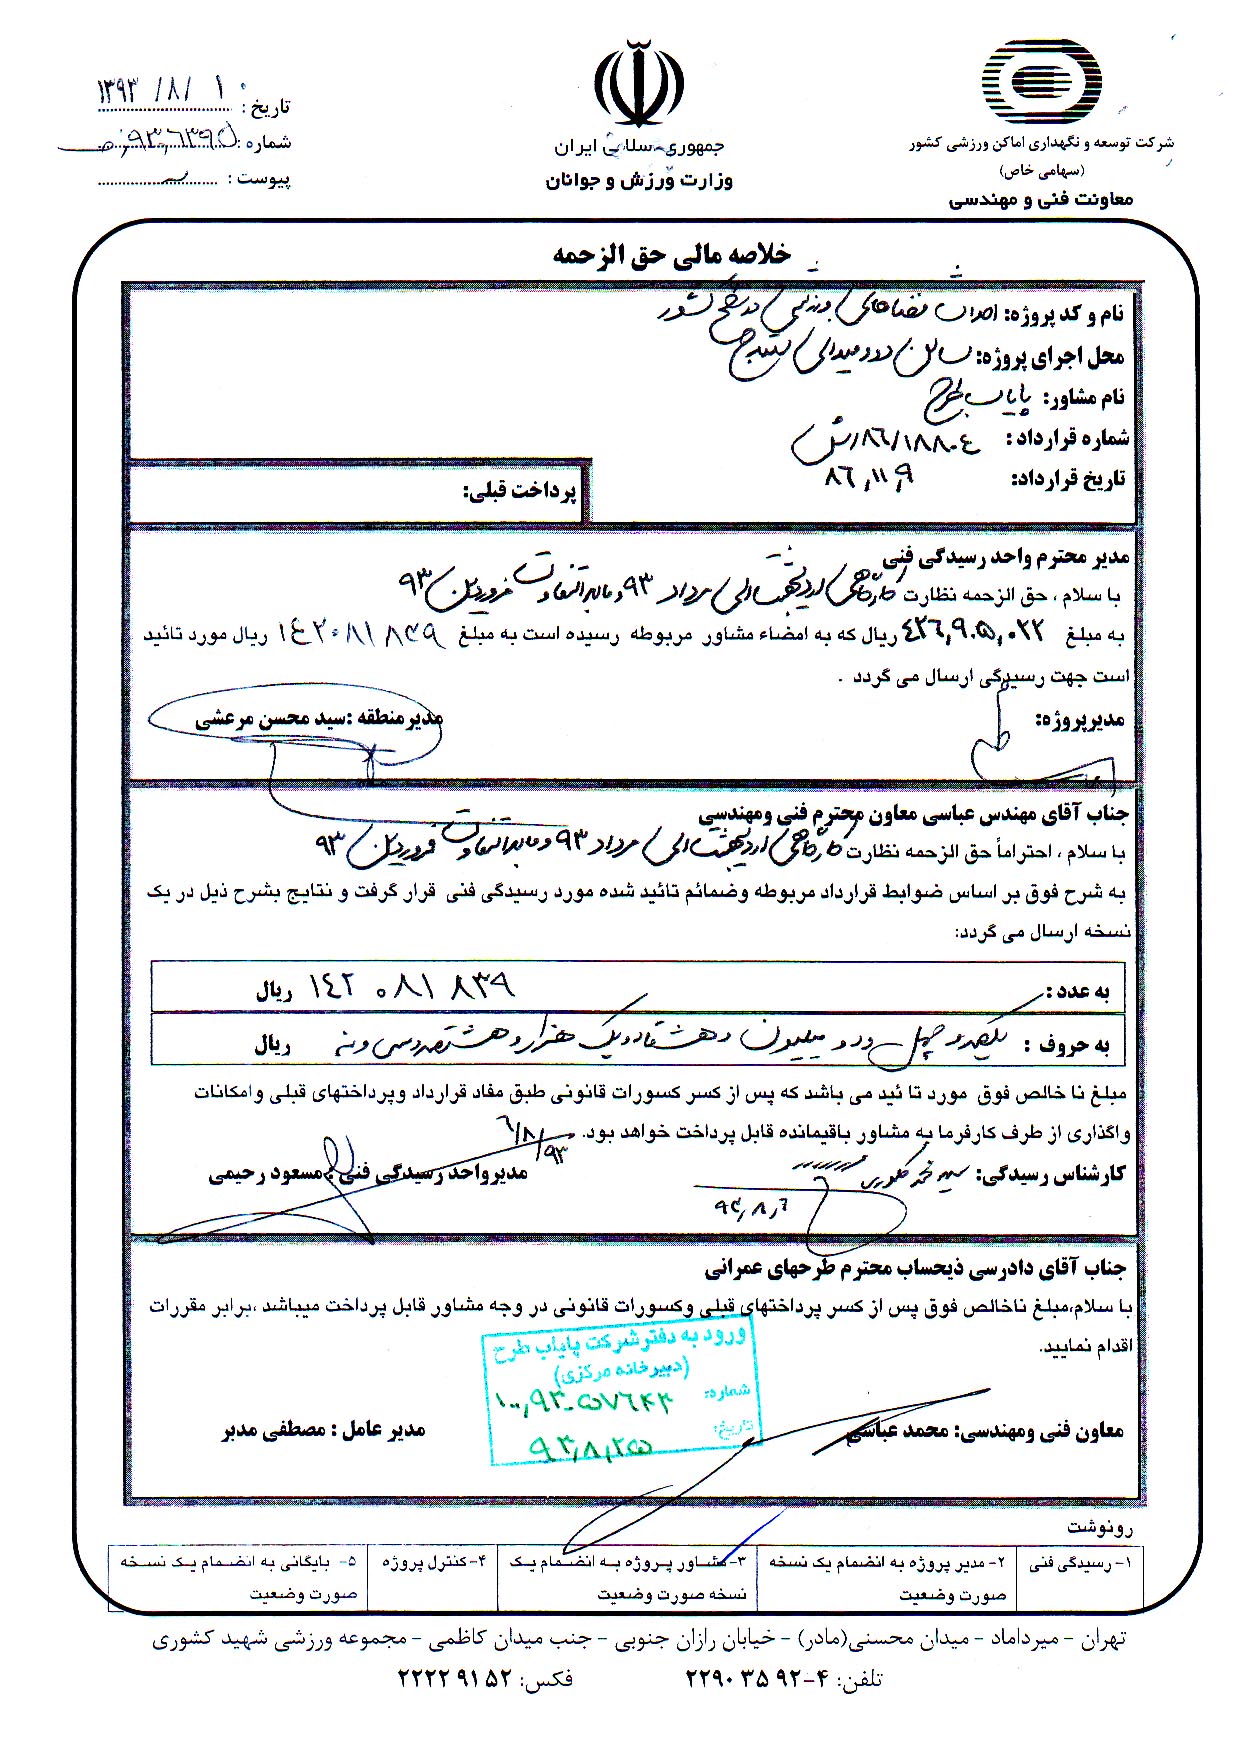 شرکت توسعه و نگهداری اماکن ورزشی کشور
(سهامی خاص)
معاونت فنی و مهندسی
جمهوری اسلامی ایران
وزارت ورزش و جوانان
تاریخ: ۱۳۹۳/۸/۱۰
شماره:
پیوست:
خلاصه مالی حق الزحمه
نام و کد پروژه: احداث فضاهای ورزشی در سطح کشور
محل اجرای پروژه: سالن دوومیدانی سنندج
نام مشاور: پایاب طرح
شماره قرارداد: ۸۶/۱۸۸۰۴/ش
تاریخ قرارداد: ۸۶,۱۱,۹
پرداخت قبلی:
مدیر محترم واحد رسیدگی فنی
با سلام ، حق الزحمه نظارت کارگاهی اردیبهشت الی مرداد ۹۳ و مابه التفاوت فروردین ۹۳
به مبلغ ۴۲۶,۹۰۵,۰۲۲ ریال که به امضاء مشاور مربوطه رسیده است به مبلغ ۱۴۲۰۸۱۸۳۹ ریال مورد تائید
است جهت رسیدگی ارسال می گردد .
مدیرپروژه:
مدیرمنطقه :سید محسن مرعشی
جناب آقای مهندس عباسی معاون محترم فنی ومهندسی
با سلام ، احتراماً حق الزحمه نظارت کارگاهی اردیبهشت الی مرداد ۹۳ و مابه التفاوت فروردین ۹۳
به شرح فوق بر اساس ضوابط قرارداد مربوطه وضمائم تائید شده مورد رسیدگی فنی قرار گرفت و نتایج بشرح ذیل در یک
نسخه ارسال می گردد:
به عدد : ۱۴۲ ۰۸۱ ۸۳۹ ریال
به حروف : یکصد و چهل و دو میلیون و هشتاد و یک هزار و هشتصد و سی و نه ریال
مبلغ نا خالص فوق مورد تا ئید می باشد که پس از کسر کسورات قانونی طبق مفاد قرارداد وپرداختهای قبلی و امکانات
واگذاری از طرف کارفرما به مشاور باقیمانده قابل پرداخت خواهد بود.
۹۳/۸/۶
کارشناس رسیدگی:
مدیرواحد رسیدگی فنی : مسعود رحیمی
۹۳,۸,۶
جناب آقای دادرسی ذیحساب محترم طرحهای عمرانی
با سلام،مبلغ ناخالص فوق پس از کسر پرداختهای قبلی وکسورات قانونی در وجه مشاور قابل پرداخت میباشد ،برابر مقررات
اقدام نمایید.
ورود به دفتر شرکت پایاب طرح
(دبیرخانه مرکزی)
شماره: ۱۰۰,۹۳-۵۷۶۴۳
تاریخ: ۹۳,۸,۲۵
معاون فنی ومهندسی: محمد عباسی
مدیر عامل : مصطفی مدبر
رونوشت
۱- رسیدگی فنی
۲- مدیر پروژه به انضمام یک نسخه صورت وضعیت
۳- مشاور پروژه به انضمام یک نسخه صورت وضعیت
۴- کنترل پروژه
۵- بایگانی به انضمام یک نسخه صورت وضعیت
تهران - میرداماد - میدان محسنی(مادر) - خیابان رازان جنوبی - جنب میدان کاظمی - مجموعه ورزشی شهید کشوری
تلفن: ۴-۹۲ ۳۵ ۲۲۹۰ فکس: ۵۲ ۹۱ ۲۲۲۲